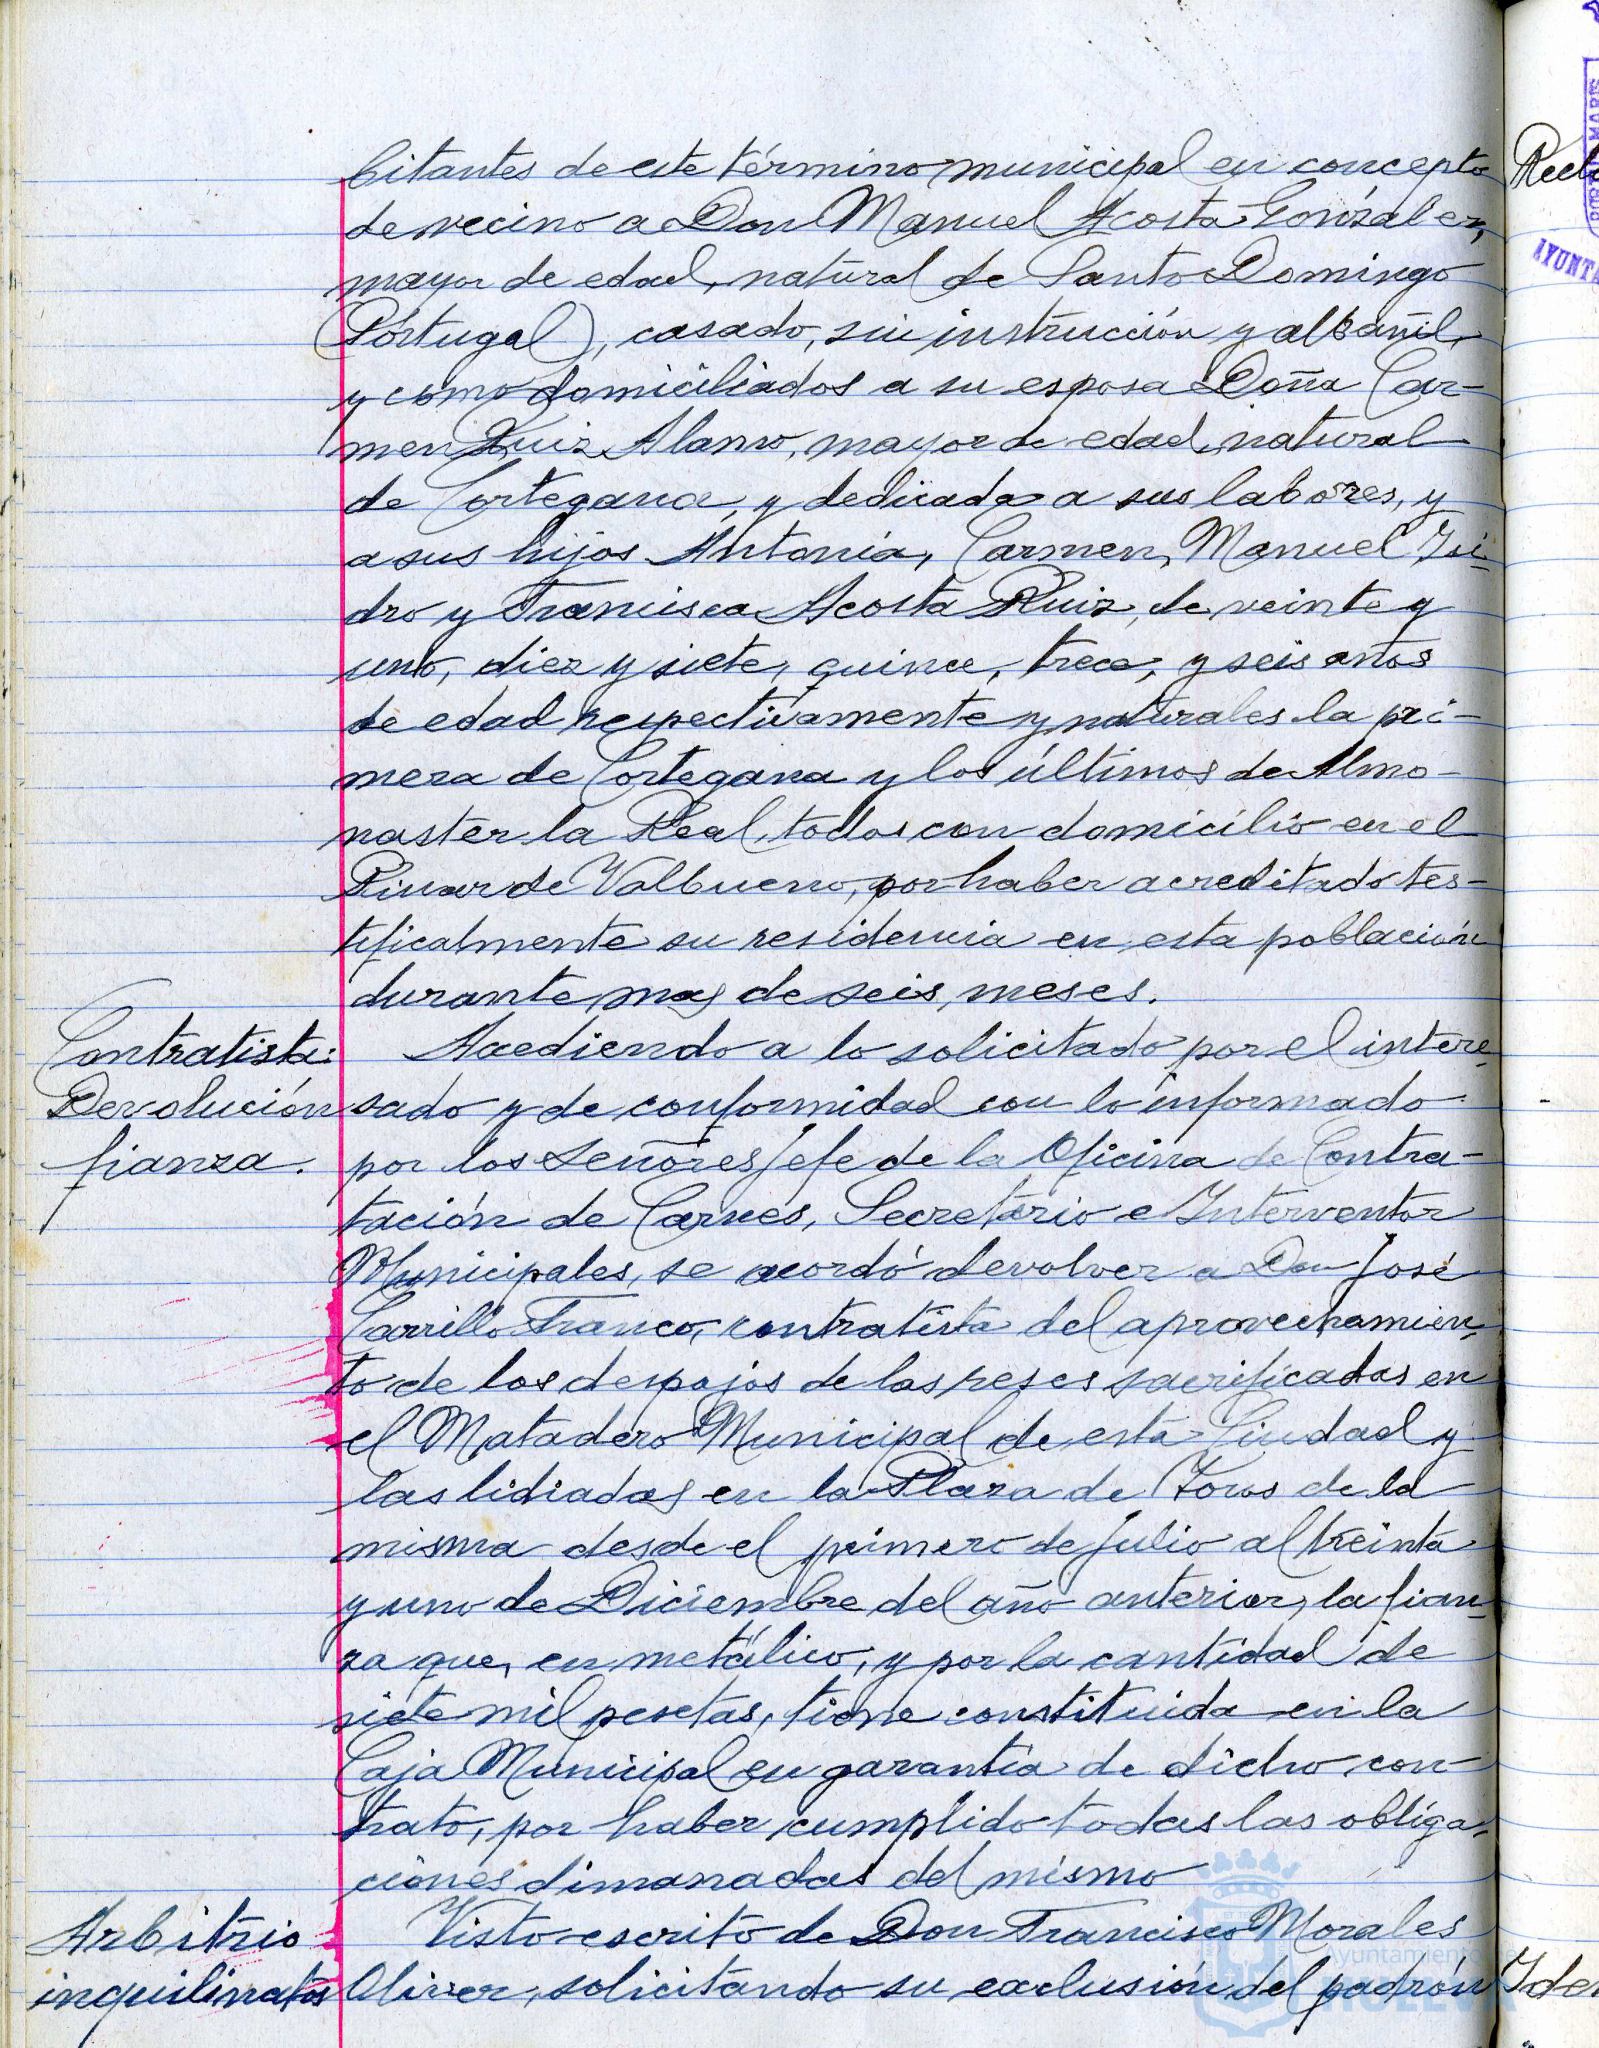 bitantes de este término municipal en concepto
de vecino a Don Manuel Acosta González,
mayor de edad, natural de Santo Domingo
(Portugal), casado, sin instrucción y albañil,
y como domiciliados a su esposa Doña Car-
men Ruiz Alamo, mayor de edad, natural
de Cortegana, y dedicada a sus labores, y
a sus hijos Antonia, Carmen, Manuel Isi-
dro y Francisca Acosta Ruiz, de veinte y
uno, diez y siete, quince, trece, y seis años
de edad respectivamente y naturales la pri-
mera de Cortegana y los últimos de Almo-
naster la Real, todos con domicilio en el
Pinar de Valbueno, por haber acreditado tes-
tificalmente su residencia en esta población
durante mas de seis meses.
Contratista:
Devolución
fianza.
Accediendo a lo solicitado por el intere-
sado y de conformidad con lo informado
por los Señores Jefe de la Oficina de Contra-
tación de Carnes, Secretario e Interventor
Municipales, se acordó devolver a Don José
Carrillo Franco, contratista del aprovechamien-
to de los despojos de las reses sacrificadas en
el Matadero Municipal de esta Ciudad y
las lidiadas en la Plaza de Toros de la
misma desde el primero de Julio al treinta
y uno de Diciembre del año anterior, la fian-
za que, en metálico, y por la cantidad de
siete mil pesetas, tiene constituida en la
Caja Municipal en garantía de dicho con-
trato, por haber cumplido todas las obliga-
ciones dimanadas del mismo
Arbitrio
inquilinatos
Visto escrito de Don Francisco Morales
Oliver, solicitando su exclusión del padrón
Ayuntamiento de
HUELVA